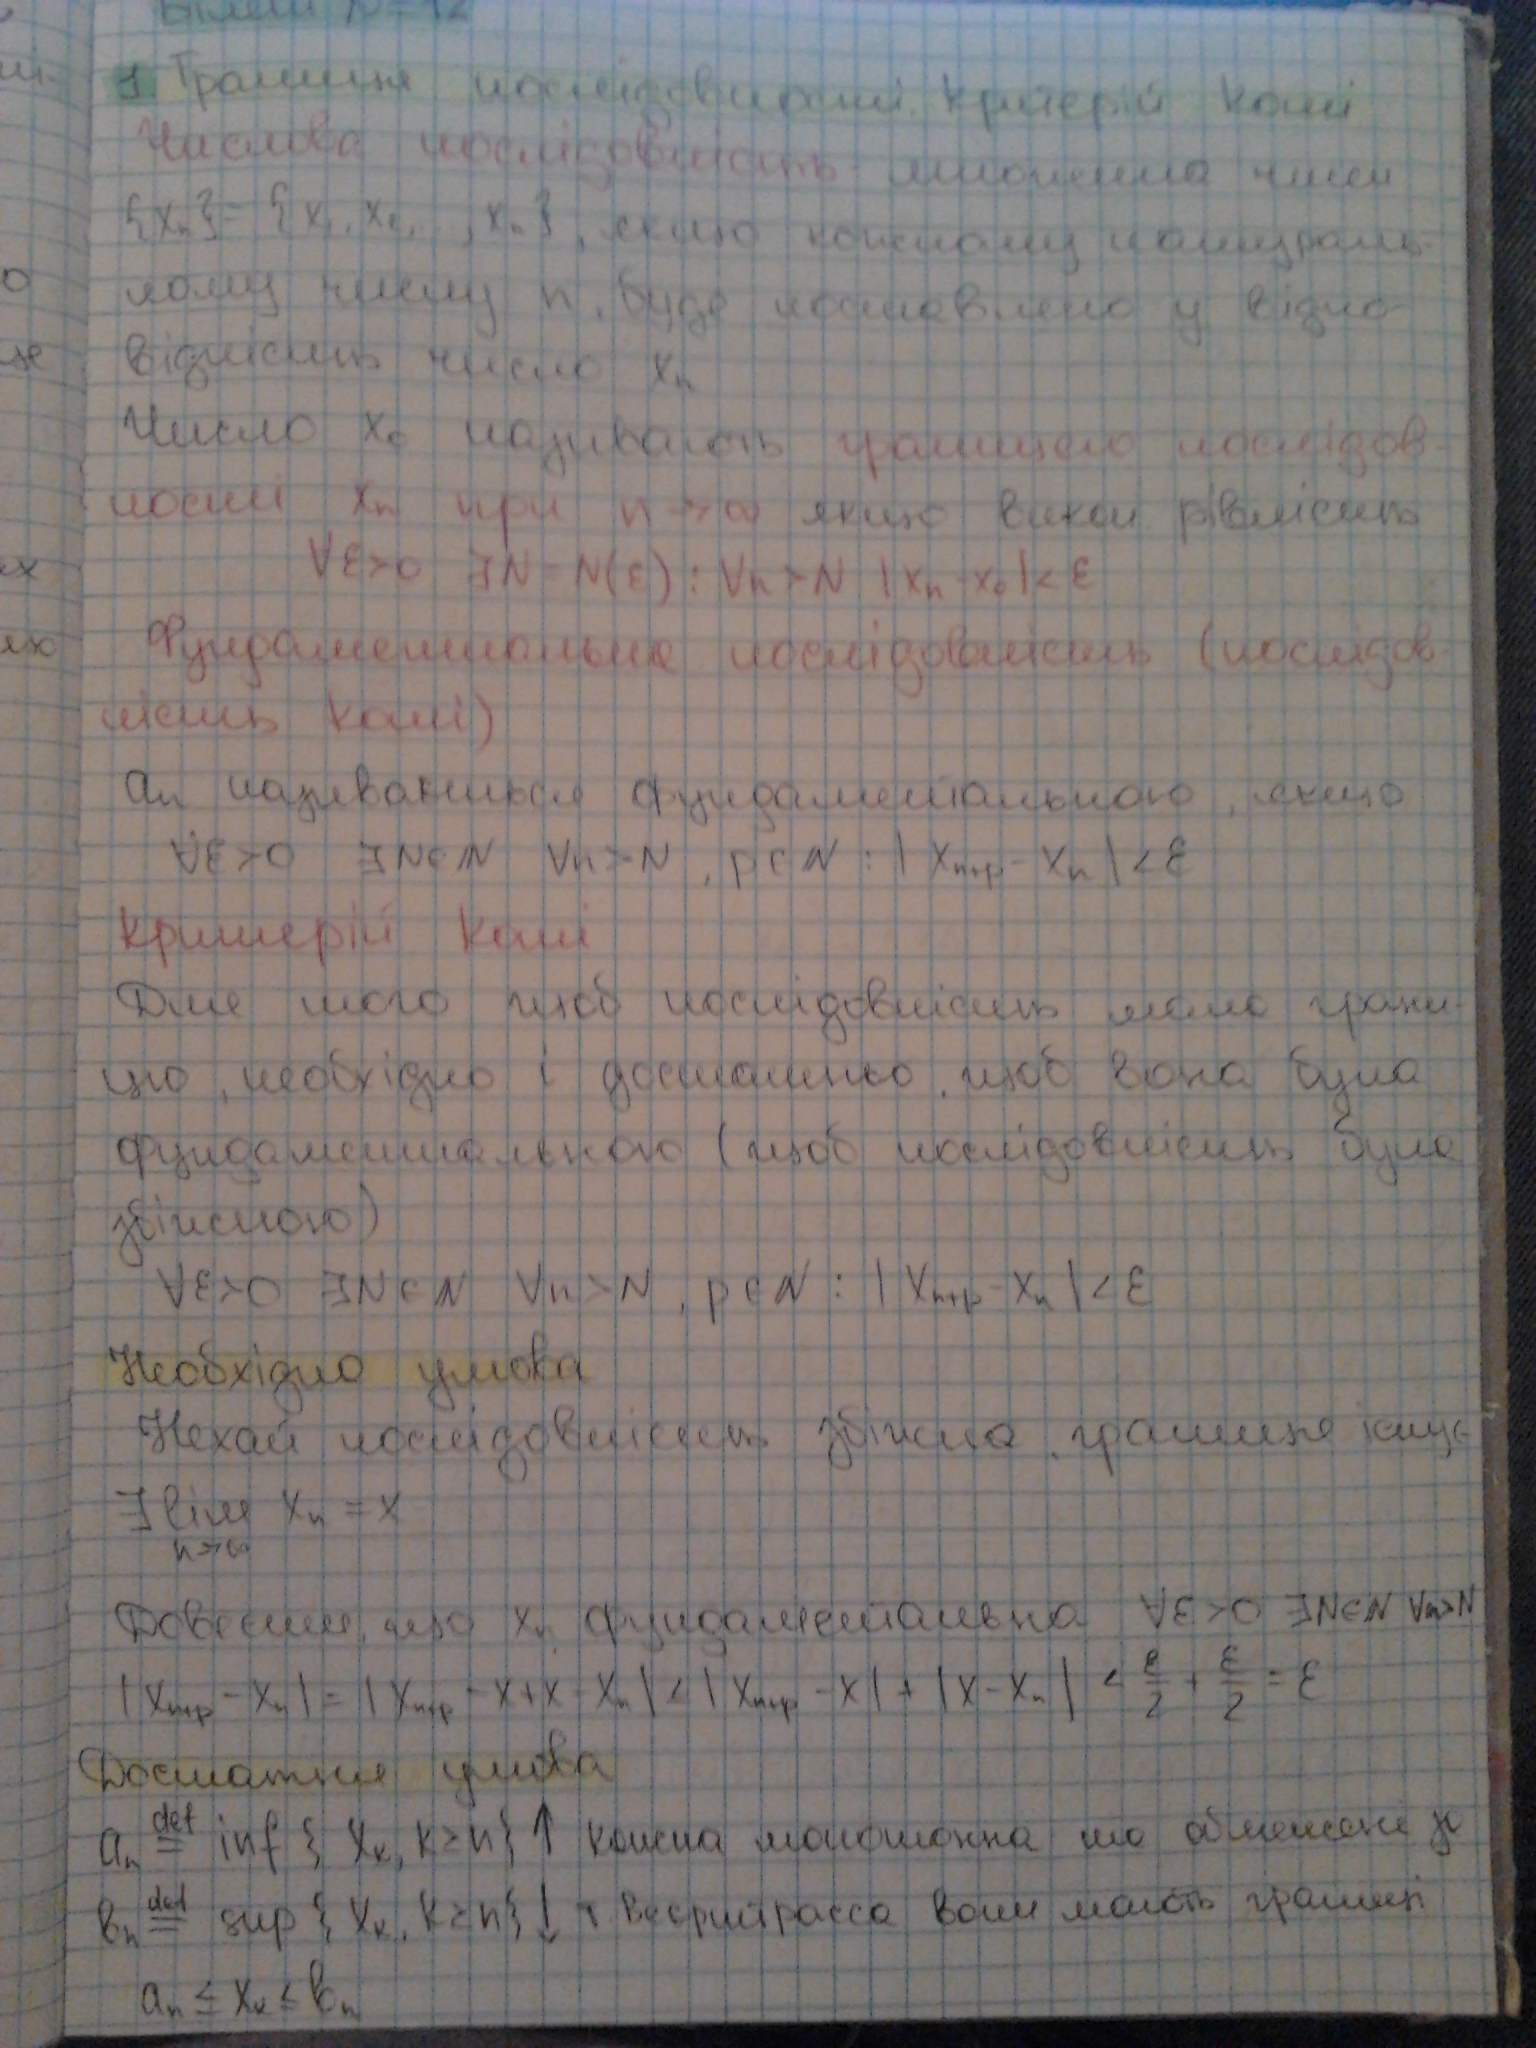 Білет №12
1 Границя послідовності. Критерій Коші
Числова послідовність - множина чисел
{xₙ} = {x₁, x₂, ..., xₙ}, якщо кожному натураль-
ному числу n, буде поставлено у відпо-
відність число xₙ
Число x₀ називають границею послідов-
ності xₙ при n→∞ якщо викон рівність
∀ε>0 ∃N=N(ε): ∀n>N |xₙ-x₀|<ε
Фундаментальна послідовність (послідов-
ність Коші)
aₙ називається фундаментальною, якщо
∀ε>0 ∃N∈ℕ ∀n>N, p∈ℕ : |xₙ₊ₚ - xₙ|<ε
Критерій Коші
Для того щоб послідовність мала грани-
цю, необхідно і достатньо, щоб вона була
фундаментальною (щоб послідовність була
збіжною)
∀ε>0 ∃N∈ℕ ∀n>N, p∈ℕ : |xₙ₊ₚ - xₙ|<ε
Необхідна умова
Нехай послідовність збіжна, границя існує
∃ lim xₙ = x
n→∞
Довести, що xₙ фундаментальна ∀ε>0 ∃N∈ℕ ∀n>N
|xₙ₊ₚ - xₙ| = |xₙ₊ₚ - x + x - xₙ| < |xₙ₊ₚ - x| + |x - xₙ| < ε/2 + ε/2 = ε
Достатня умова
aₙ def= inf { xₖ, k≥n} ↑ кожна монотонна та обмежені за
bₙ def= sup { xₖ, k≥n} ↓ т. Веєрштрасса вони мають границі
aₙ ≤ xₖ ≤ bₙ